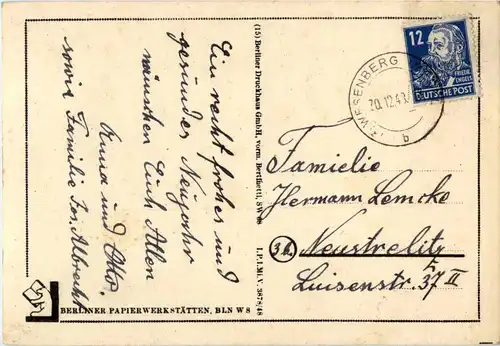 Ein recht frohes und
gesundes Neujahr
wünschen Euch Allen
Anna und Otto.
sowie Familie Jos. Albrecht
(15) Berliner Druckhaus GmbH, vorm. Bertinetti, SW 68
I.P.I.Mi.V. 3878/48
BERLINER PAPIERWERKSTÄTTEN, BLN W 8
WESENBERG
20.12.48
b
12
FRIEDR.
ENGELS
DEUTSCHE POST
Familie
Hermann Lemcke
(3a) Neustrelitz
Luisenstr. 37 II